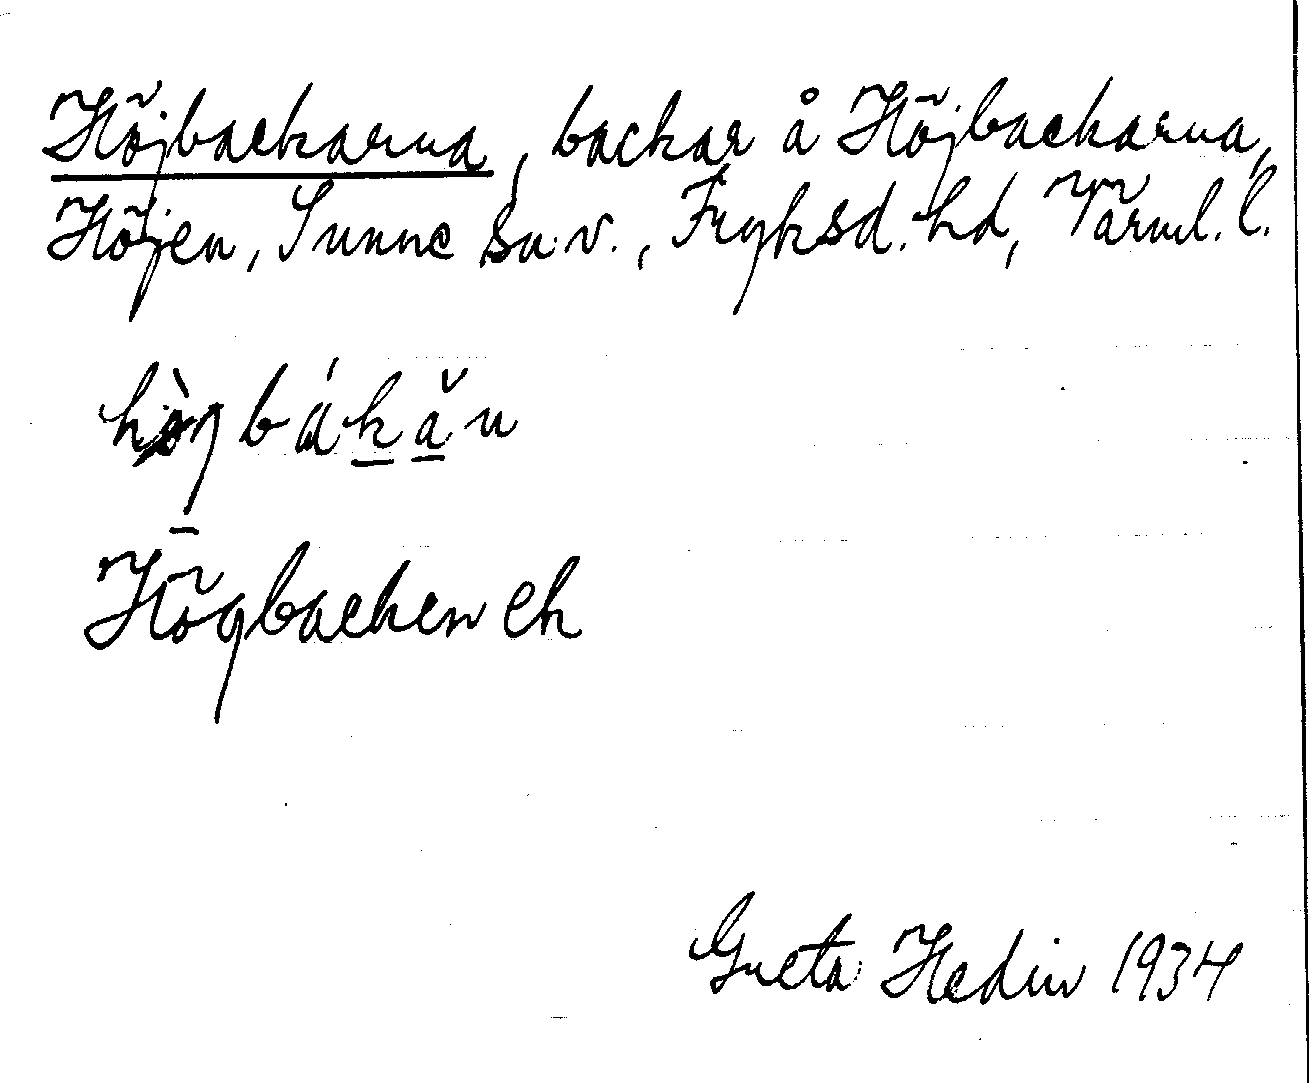 Höjbackarna, backar å Höjbackarna,
Höjen, Sunne sn. v., Fryksd. hd, Värml. l.
Högbacken ek
Greta Hedin 1934